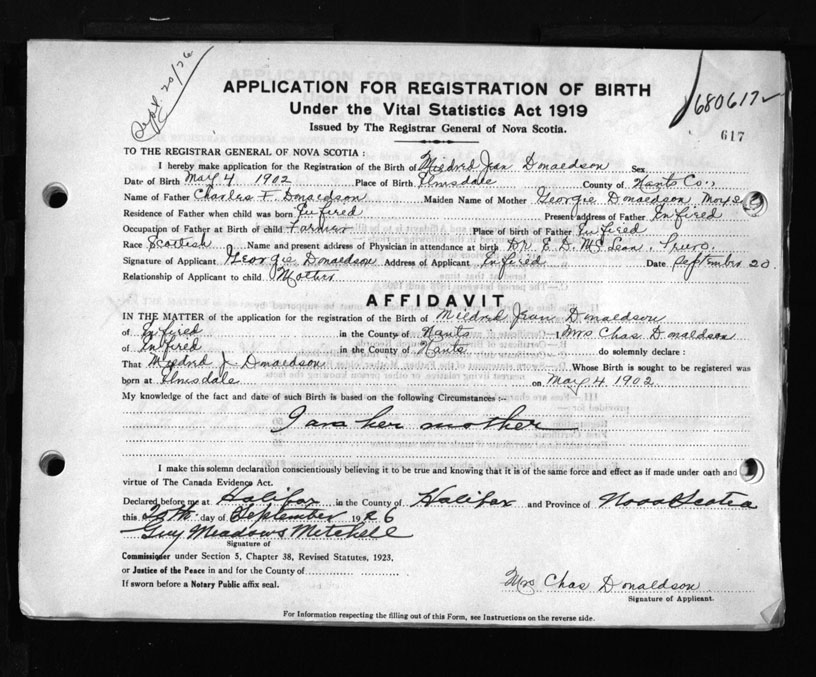 Sept 20/26
APPLICATION FOR REGISTRATION OF BIRTH
Under the Vital Statistics Act 1919
Issued by The Registrar General of Nova Scotia.
680617
617
TO THE REGISTRAR GENERAL OF NOVA SCOTIA :
I hereby make application for the Registration of the Birth of Mildred Jean Donaldson Sex
Date of Birth May 4 1902 Place of Birth Elmsdale County of Hants Co.,
Name of Father Charles F. Donaldson Maiden Name of Mother Georgie Donaldson
Residence of Father when child was born Enfired Present address of Father Enfired
Occupation of Father at Birth of child Farmer Place of birth of Father Enfired
Race Scottish Name and present address of Physician in attendance at birth Dr. E. D. McLean, Truro.
Signature of Applicant Georgie Donaldson Address of Applicant Enfired Date September 20.
Relationship of Applicant to child Mother
AFFIDAVIT
IN THE MATTER of the application for registration of the Birth of Mildred Jean Donaldson
of Enfired in the County of Hants I Mrs Chas Donaldson
of Enfired in the County of Hants do solemnly declare :
That Mildrd J Donaldson Whose Birth is sought to be registered was
born at Elmsdale on May 4 1902
My knowledge of the fact and date of such Birth is based on the following Circumstances :-
I am her mother
I make this solemn declaration conscientiously believing it to be true and knowing that it is of the same force and effect as if made under oath and
virtue of The Canada Evidence Act.
Declared before me at Halifax in the County of Halifax and Province of Nova Scotia
this 20th day of September 1926
Guy Meadows Mitchell
Signature of
Commissioner under Section 5, Chapter 38, Revised Statutes, 1923,
or Justice of the Peace in and for the County of
If sworn before a Notary Public affix seal.
Mrs Chas Donaldson
Signature of Applicant.
For Information respecting the filling out of this Form, see Instructions on the reverse side.